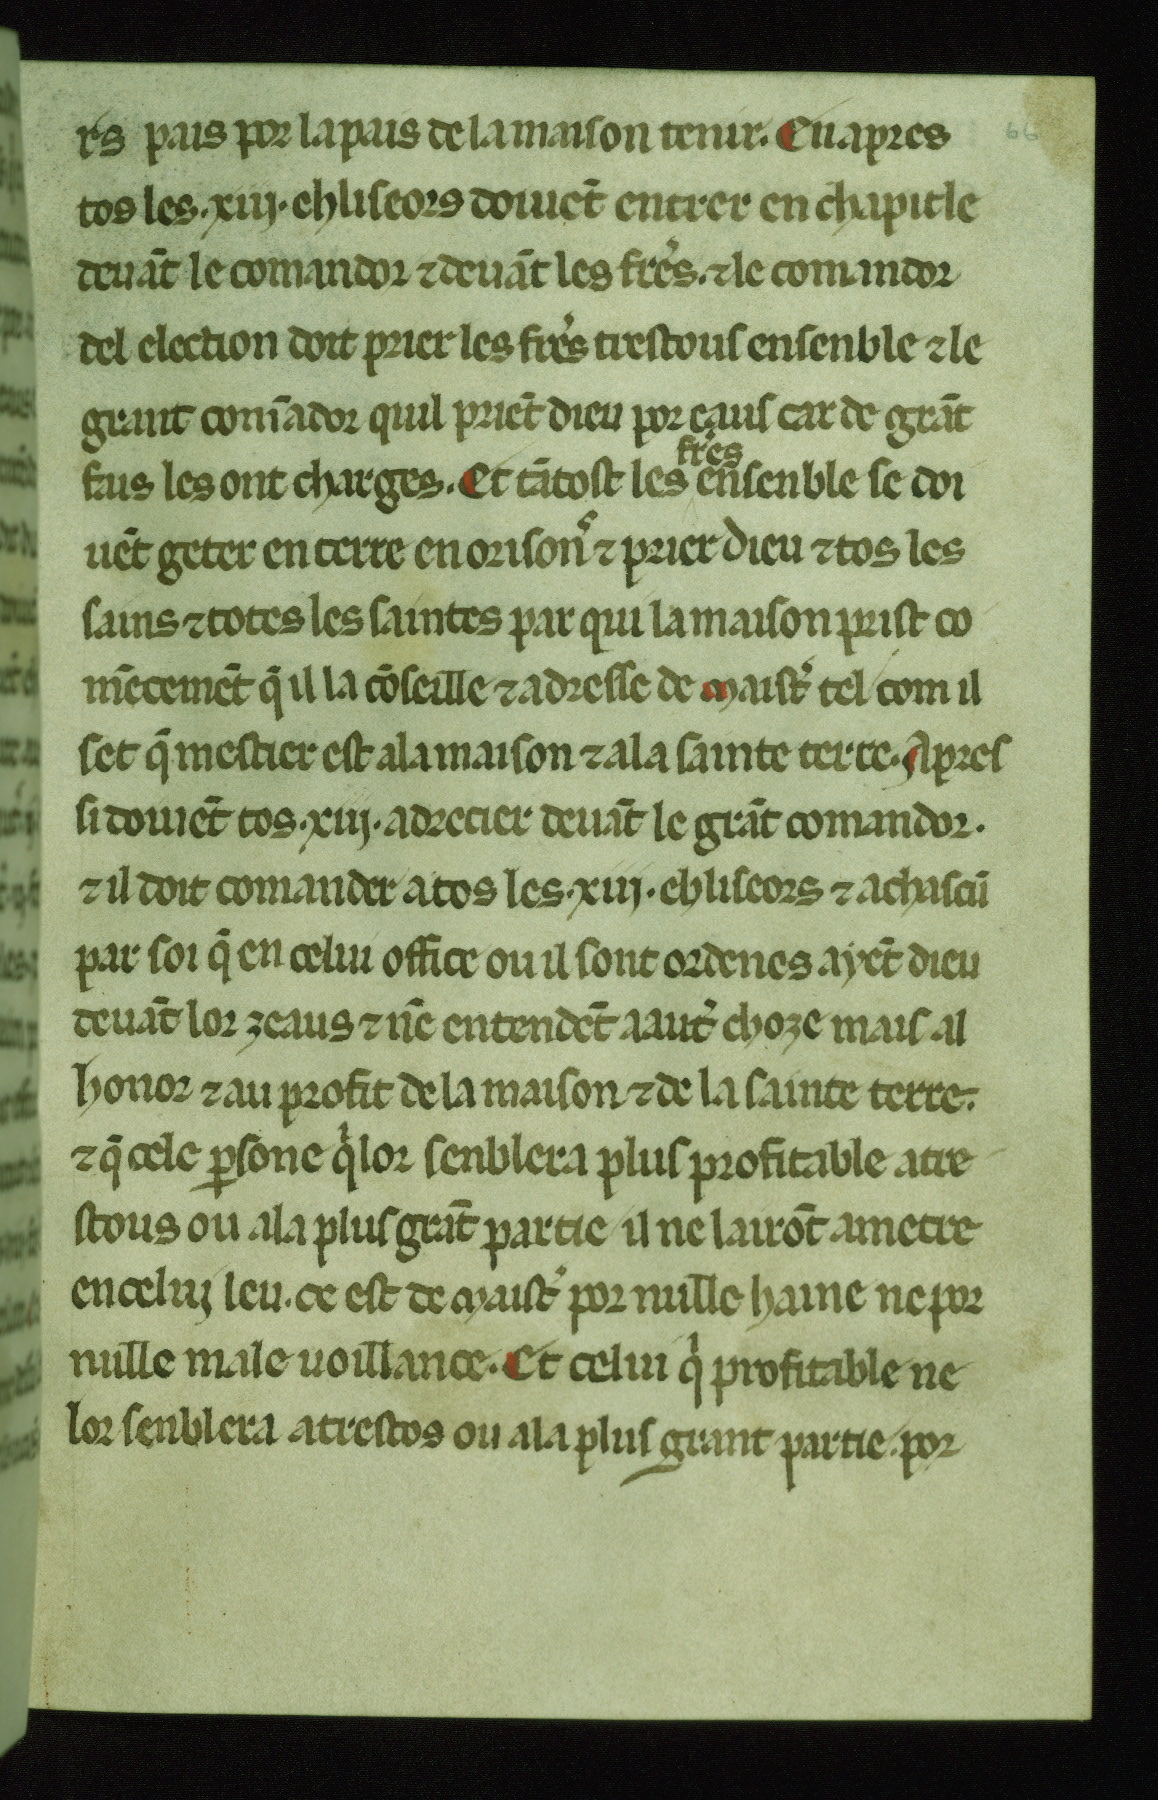 66
rs pais por la pais de la maison tenir. En apres
tos les .xiij. ehliseors doiuēt entrer en chapitle
deuāt le comandor ⁊ deuāt les frės. ⁊ le comandor
del election doit prier les frės trestous ensenble ⁊ le
grant comādor quil priēt dieu por eaus car de grāt
fais les ont charges. Et tātost les frės ensenble se doi
uēt geter en terre en orisons ⁊ prier dieu ⁊ tos les
sains ⁊ totes les saintes par qui la maison prist co
mēcemēt q̄ il la cōseille ⁊ adresse de maist̉ tel com il
set q̄ mestier est a la maison ⁊ a la sainte terre. Apres
si doiuēt tos .xiij. adrecier deuāt le grāt comandor.
⁊ il doit comander a tos les .xiij. ehliseors ⁊ a chascū
par soi q̄ en celui office ou il sont ordenes ayēt dieu
deuāt lor zeaus ⁊ nē entendēt a aut̉ choze mais al
honor ⁊ au profit de la maison ⁊ de la sainte terre.
⁊ q̄ cele ꝑsone qⁱ lor senblera plus profitable a tre
stous ou a la plus grāt partie il ne lairōt a metre
en celuj leu. ce est de maist̉ por nulle haine ne por
nulle male uoillance. Et celui qⁱ profitable ne
lor senblera a trestos ou a la plus grant partie. por